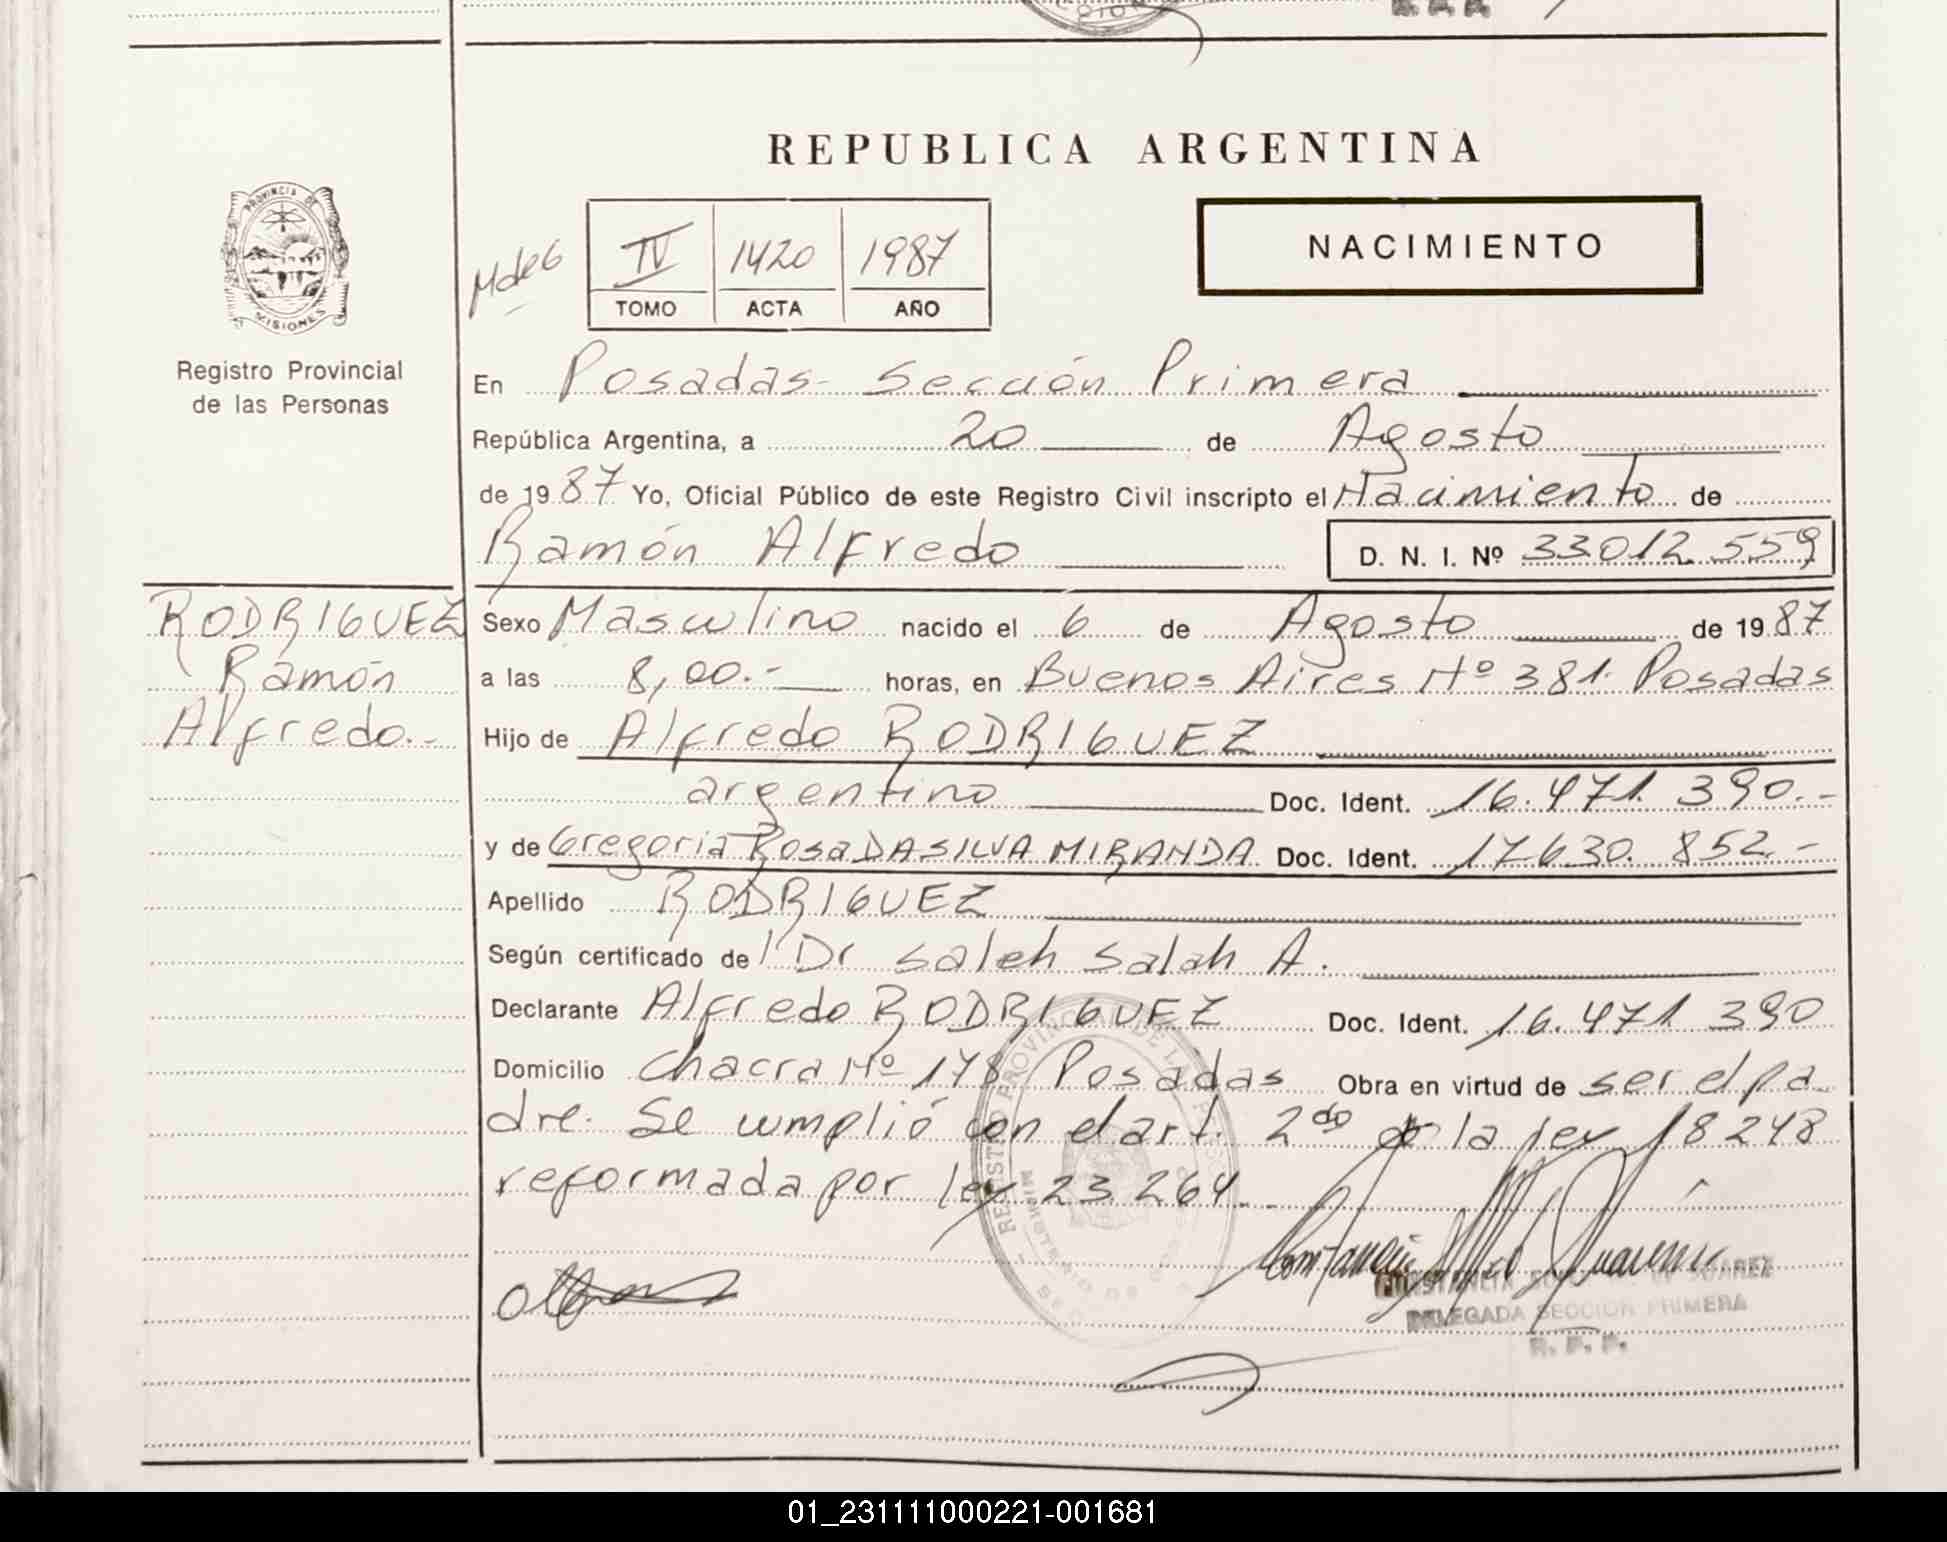 REPUBLICA ARGENTINA
PROVINCIA DE
MISIONES
Registro Provincial
de las Personas
IV 1420 1987
TOMO ACTA AÑO
NACIMIENTO
En Posadas - Sección Primera
República Argentina, a 20 de Agosto
de 1987 Yo, Oficial Público de este Registro Civil inscripto el Nacimiento de
Ramón Alfredo D. N. I. Nº 33.012.559
RODRIGUEZ
Ramón
Alfredo.-
Sexo Masculino nacido el 6 de Agosto de 1987
a las 8,00.- horas, en Buenos Aires Nº 381. Posadas
Hijo de Alfredo RODRIGUEZ
argentino Doc. Ident. 16.471.390.-
y de Gregoria Rosa DASILVA MIRANDA Doc. Ident. 17.630.852.-
Apellido RODRIGUEZ
Según certificado de l Dr Saleh Salah A.
Declarante Alfredo RODRIGUEZ Doc. Ident. 16.471.390
Domicilio Chacra Nº 178 Posadas Obra en virtud de ser el pa
dre. Se cumplió con el art. 2do de la ley 18248
reformada por ley 23.264.
DELEGADA SECCION PRIMERA
R. P. P.
01_231111000221-001681